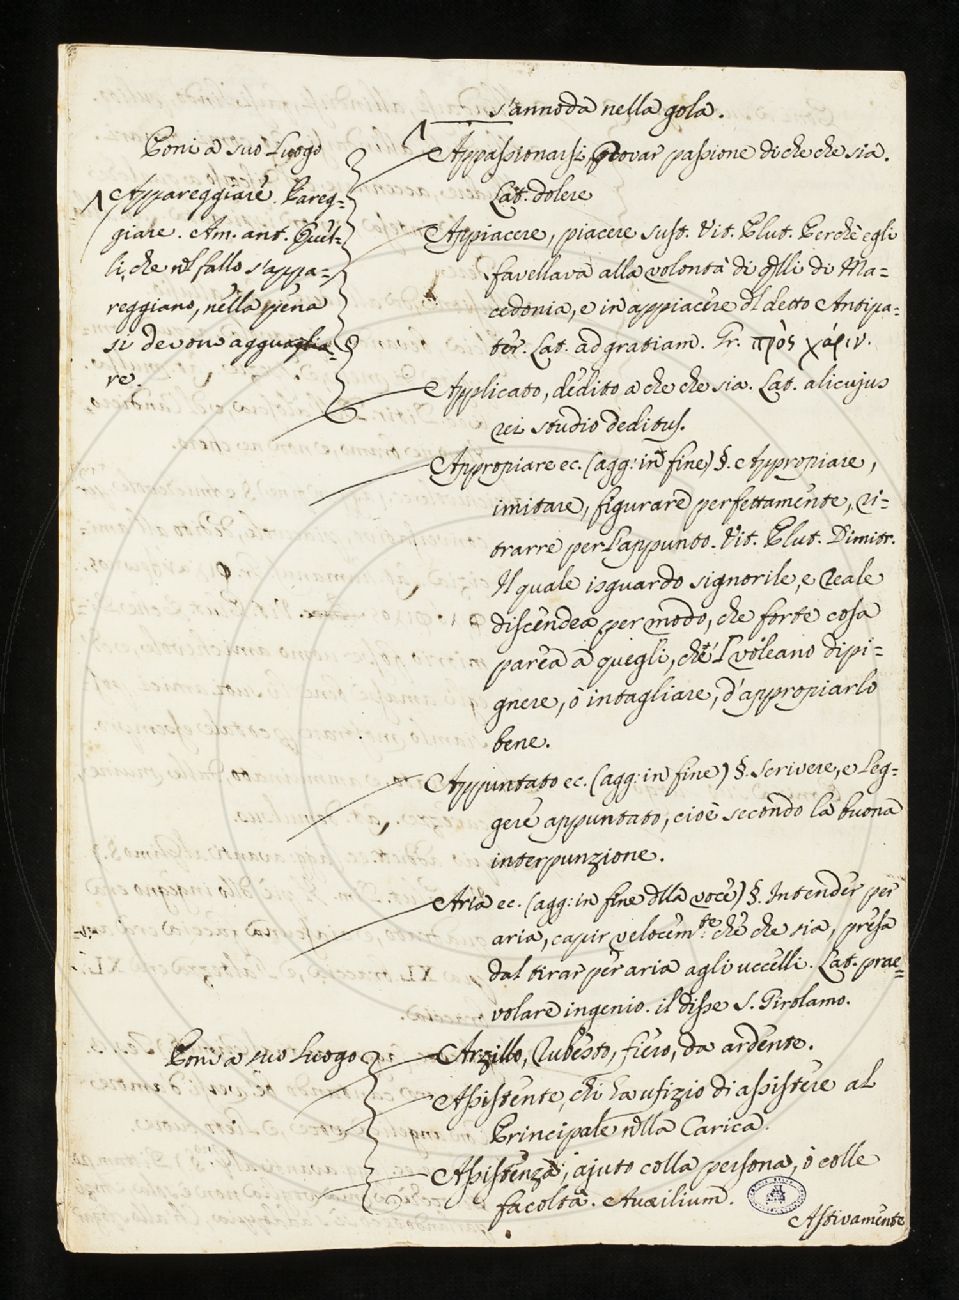 s'annoda nella gola.
Poni a suo Luogo
Appareggiare. Pareg-
giare. Am. ant. Quel-
li, che nel fallo s'appa-
reggiano, nella pena
si devon agguaglia-
re.
Appassionarsi, provar passione di che che sia.
Lat. dolere
Appiacere, piacere sust. Vit. Plut. Perchè egli
favellava alla volontà di qlli di Ma-
cedonia, e in appiacere del detto Antipa-
ter. Lat. ad gratiam. Gr. πρὸς χάριν.
Applicato, dedito a che che sia. Lat. alicujus
rei studio deditus.
Appropiare ec. (agg: in fine) §. Appropiare,
imitare, figurare perfettamente, ri-
trarre per l'appunto. Vit. Plut. Dimitr.
Il quale isguardo signorile, e reale
discendea per modo, che forte cosa
parea a quegli, che'l voleano dipi-
gnere, ò intagliare, d'appropiarlo
bene.
Appuntato ec. (agg: in fine) §. Scrivere, e leg-
gere appuntato, cioè secondo la buona
interpunzione.
Aria ec. (agg: in fine dlla voce) §. Intender per
aria, capir velocemte. che che sia, presa
dal tirar per aria agli uccelli. Lat. prae-
volare ingenio. il disse S. Girolamo.
Poni a suo Luogo
Arzillo, rubesto, fiero, da ardente.
Assistente, chi ha ufizio di assistere al
Principale nlla Carica.
Assistenza, ajuto colla persona, ò colle
facoltà. Auxilium.
Astivamente